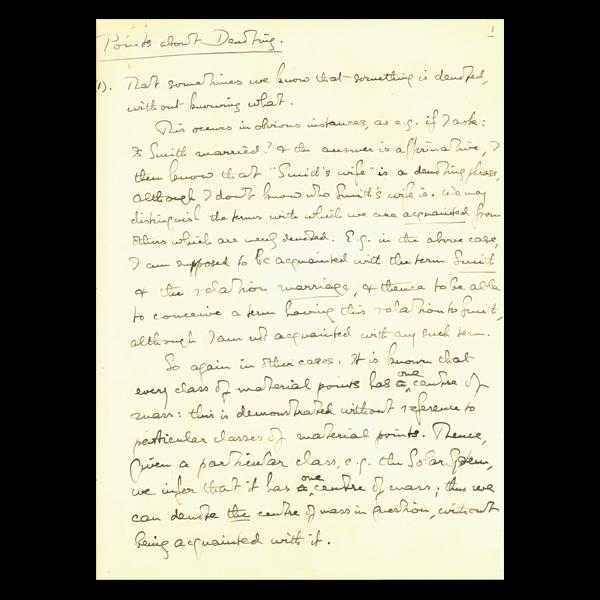 1
Points about Denoting.
(1). That sometimes we know that something is denoted,
without knowing what.
This occurs in obvious instances, as e.g. if I ask:
Is Smith married? & the answer is affirmative, I
then know that "Smith's wife" is a denoting phrase,
although I don't know who Smith's wife is. We may
distinguish the terms with which we are acquainted from
others which are merely denoted. E.g. in the above case,
I am supposed to be acquainted with the term Smith
& the relation marriage, & thence to be able
to conceive a term having this relation to Smith,
although I am not acquainted with any such term.
So again in other cases. It is known that
every class of material points has one centre of
mass: this is demonstrated without reference to
particular classes of material points. Thence,
given a particular class, e.g. the Solar System,
we infer that it has one centre of mass; thus we
can denote the centre of mass in question, without
being acquainted with it.